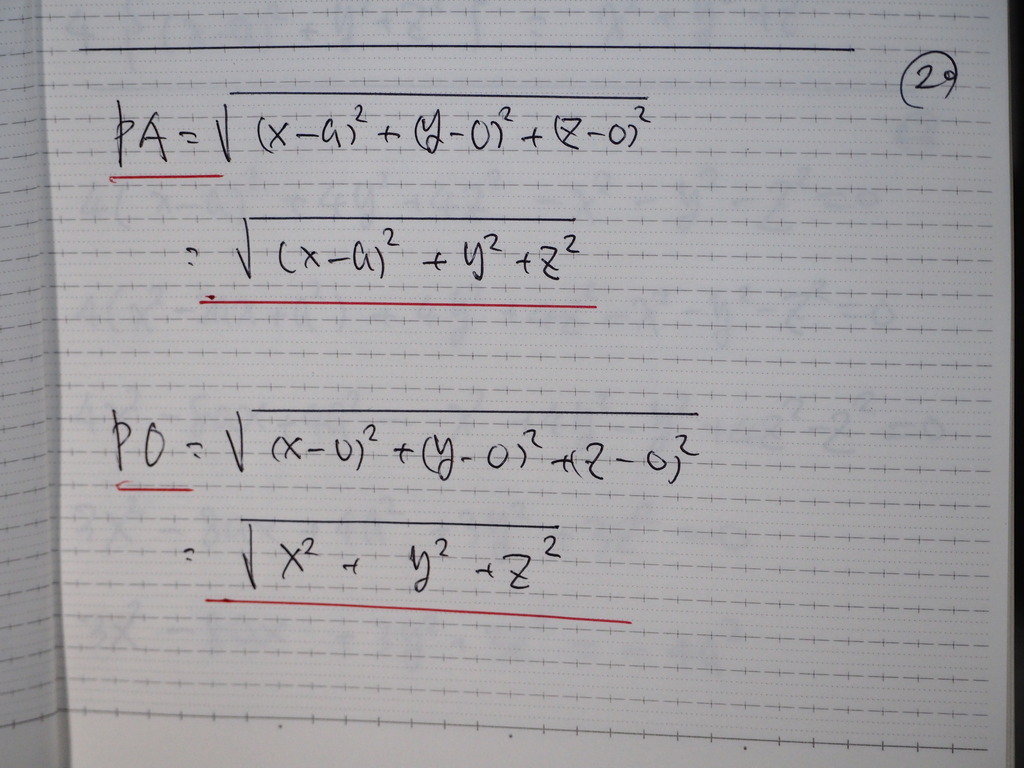 29
PA = √(x-a)² + (y-0)² + (z-0)²
= √(x-a)² + y² + z²
PO = √(x-0)² + (y-0)² + (z-0)²
= √x² + y² + z²